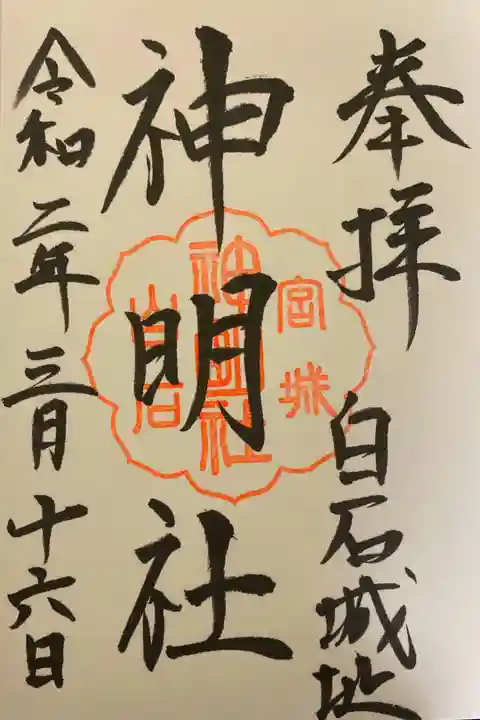 奉拝 白石城址
神明社
令和二年三月十六日
宮城
神明社
白石